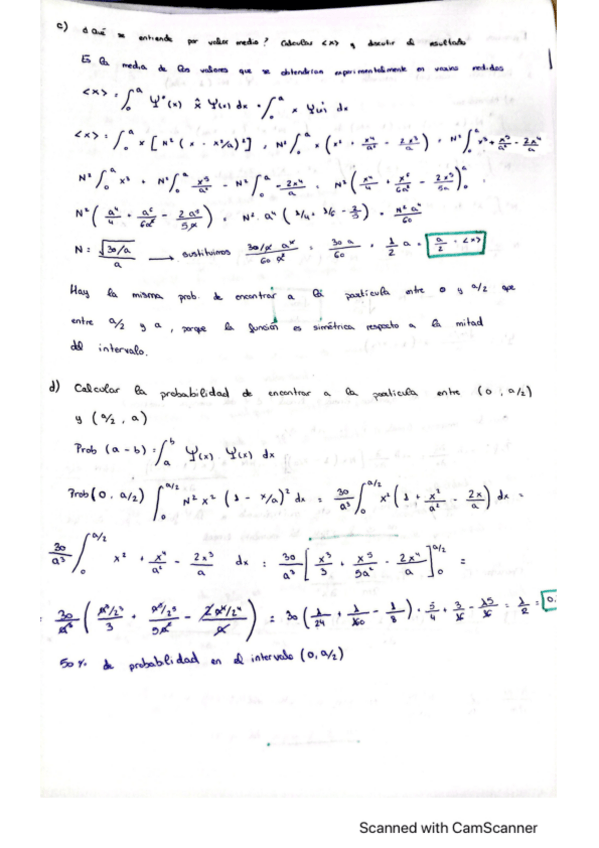 c) ¿Qué se entiende por valor medio? Calcular <x> y discutir el resultado
Es la media de los valores que se obtendrían experimentalmente en varias medidas
<x> = ∫₀ᵃ Ψ*(x) x̂ Ψ(x) dx = ∫₀ᵃ x Ψ(x)² dx
<x> = ∫₀ᵃ x [N² (x - x²/a)²] = N² ∫₀ᵃ x (x² + x⁴/a² - 2x³/a) = N² ∫₀ᵃ x³ + x⁵/a² - 2x⁴/a
N² ∫₀ᵃ x³ + N² ∫₀ᵃ x⁵/a² - N² ∫₀ᵃ -2x⁴/a = N² (x⁴/4 + x⁶/6a² - 2x⁵/5a)₀ᵃ =
N² (a⁴/4 + a⁶/6a² - 2a⁵/5a) = N² a⁴ (1/4 + 1/6 - 2/5) = N² a⁴/60
N = √(30/a)/a → sustituimos 30/a a⁴/60 a² = 30 a/60 = 1/2 a = a/2 = <x>
Hay la misma prob. de encontrar a la partícula entre 0 y a/2 que
entre a/2 y a, porque la función es simétrica respecto a la mitad
del intervalo.
d) Calcular la probabilidad de encontrar a la partícula entre (0, a/2)
y (a/2, a)
Prob (a - b) = ∫ₐᵇ Ψ(x) · Ψ(x) dx
Prob (0, a/2) ∫₀^(a/2) N² x² (1 - x/a)² dx = 30/a³ ∫₀^(a/2) x² (1 + x²/a² - 2x/a) dx =
30/a³ ∫₀^(a/2) x² + x⁴/a² - 2x³/a dx = 30/a³ [x³/3 + x⁵/5a² - 2x⁴/a]₀^(a/2) =
30/a³ (a³/2³/3 + a⁵/2⁵/5a² - 2a⁴/2⁴/a) = 30 (1/24 + 1/160 - 1/8) = 5/4 + 3/16 - 15/16 = 1/2 = 0.
50 % de probabilidad en el intervalo (0, a/2)
Scanned with CamScanner